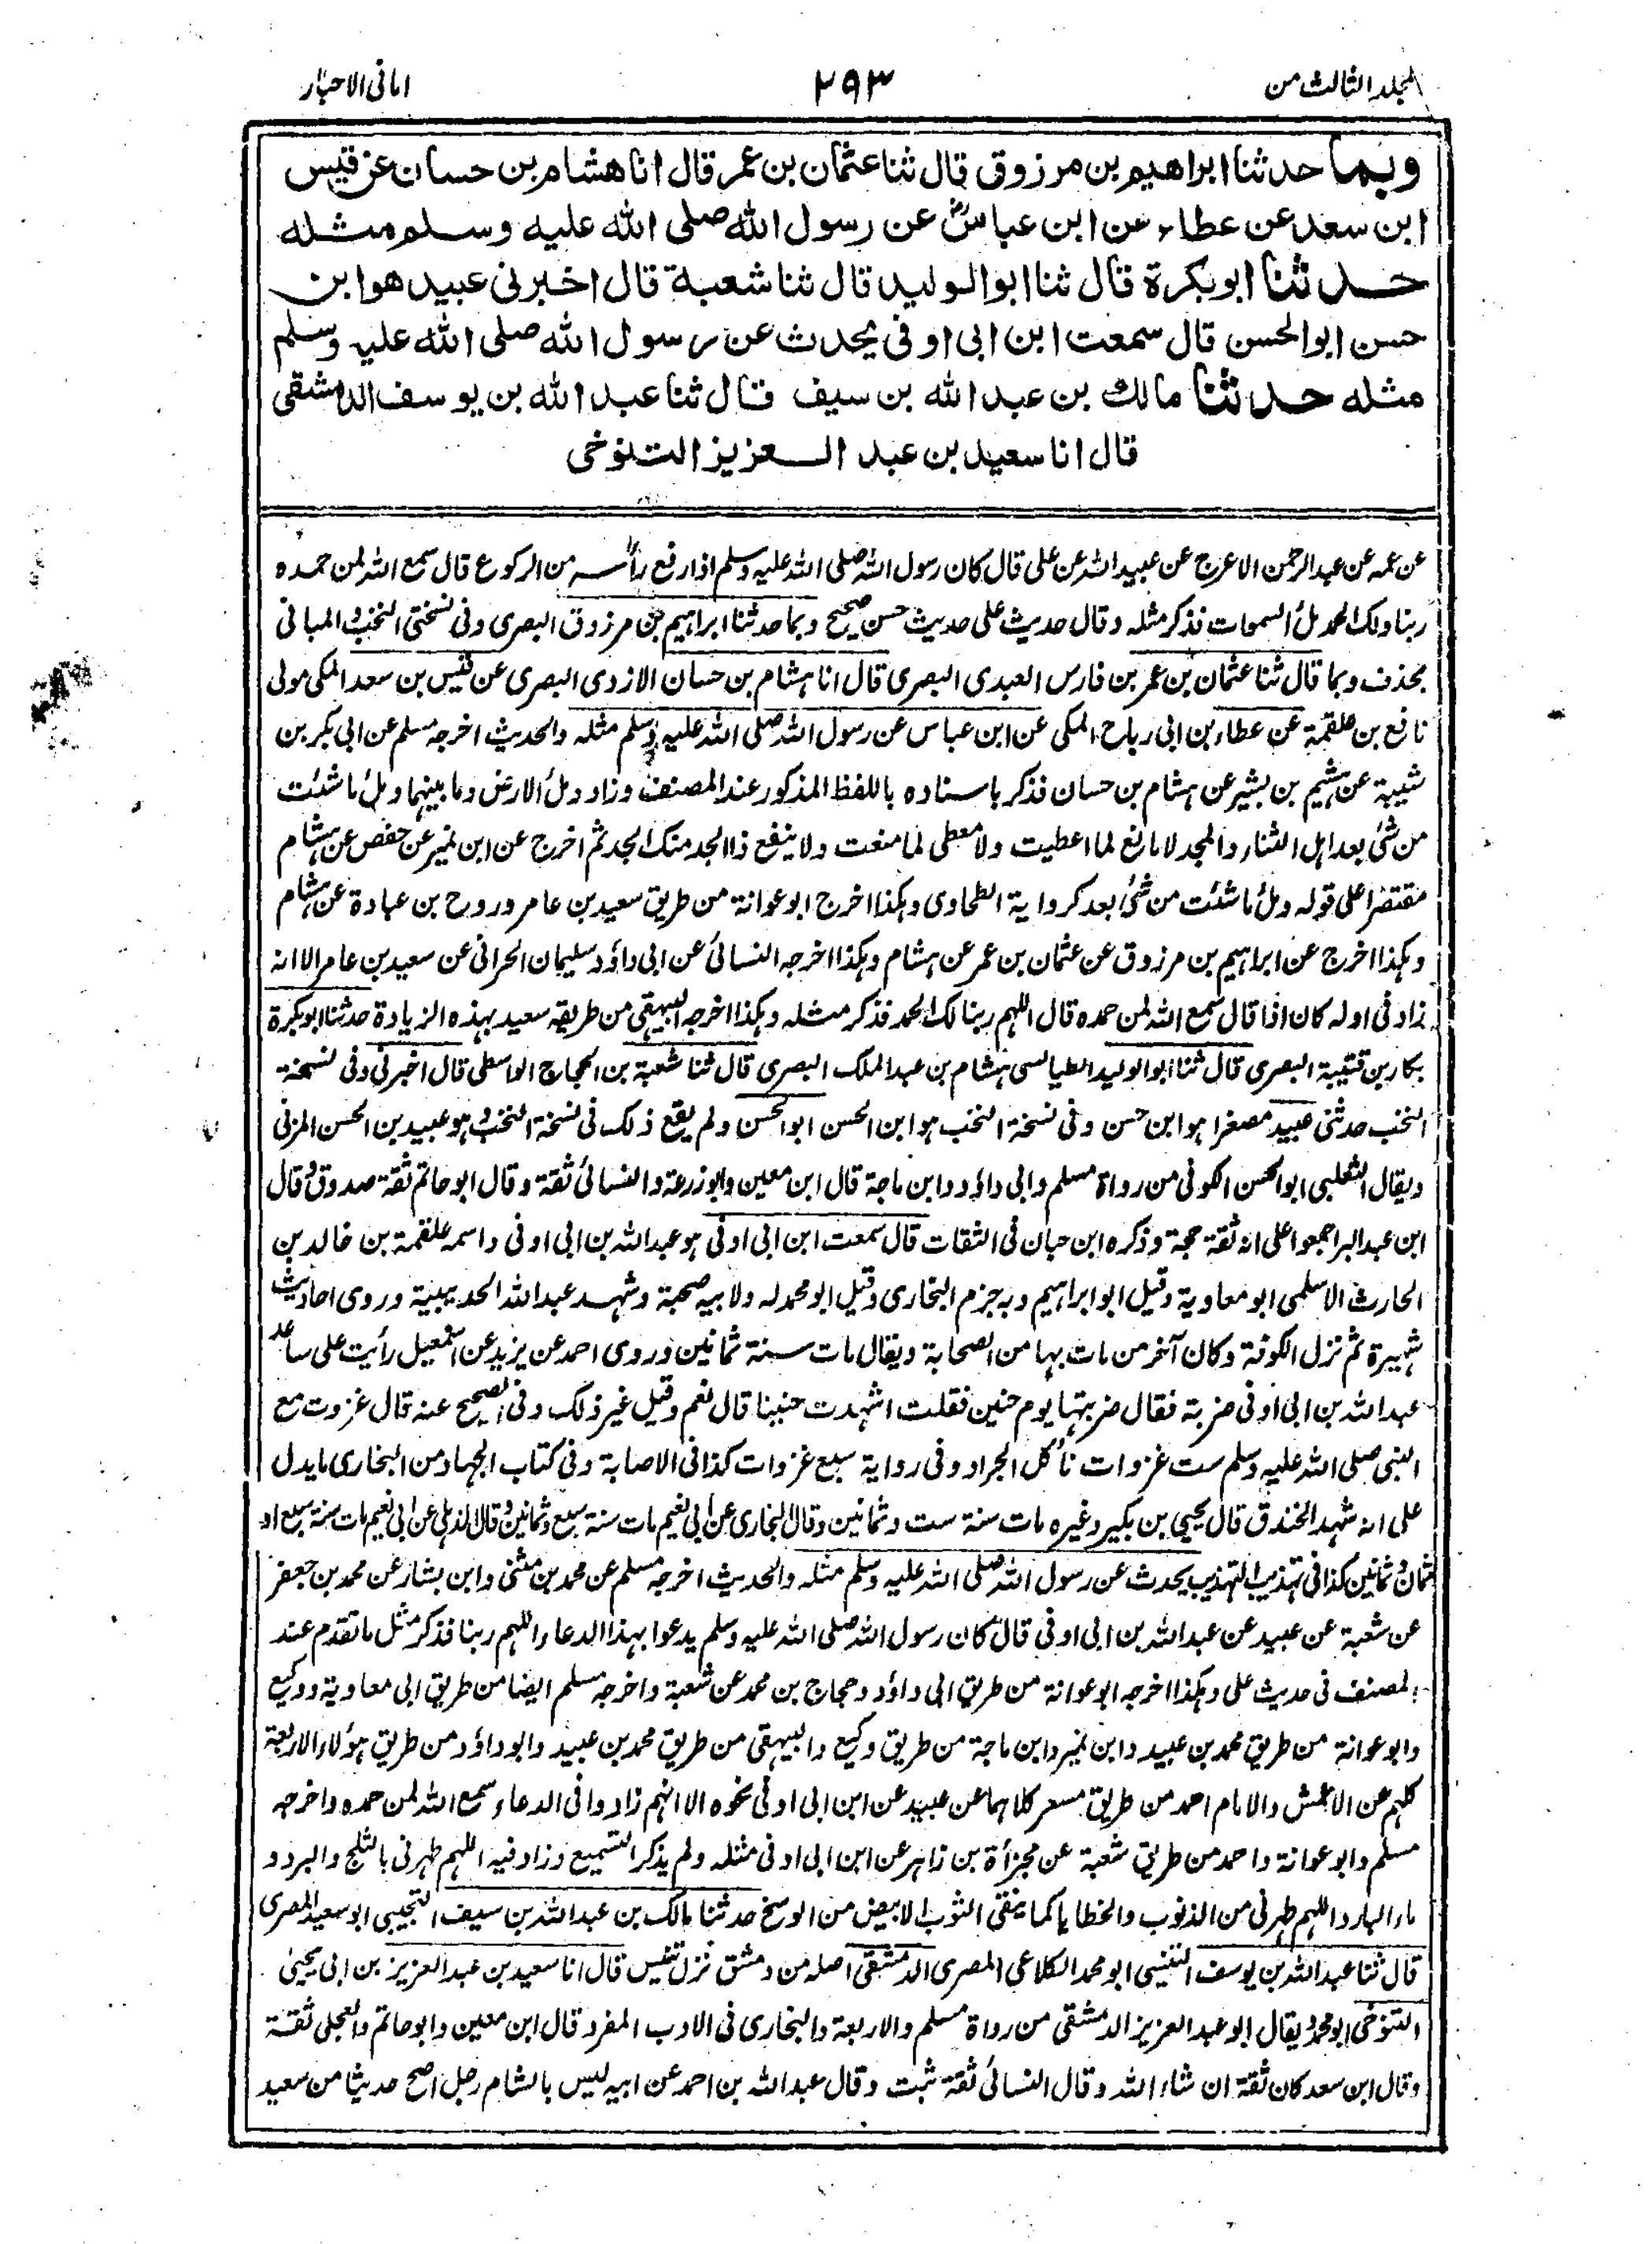 المجلد الثالث من
٢٩٣
امانی الاحبار
وبما حدثنا ابراهيم بن مرزوق قال ثنا عثمان بن عمر قال انا هشام بن حسان عن قيس
ابن سعد عن عطاء عن ابن عباسؓ عن رسول الله صلى الله عليه وسلم مثله
حدثنا ابو بكرة قال ثنا ابو الوليد قال ثنا شعبة قال اخبرنى عبيد هو ابن
حسن ابو الحسن قال سمعت ابن ابى اوفى يحدث عن رسول الله صلى الله عليه وسلم
مثله حدثنا مالك بن عبد الله بن سيف قال ثنا عبد الله بن يوسف الدمشقى
قال انا سعيد بن عبد العزيز التنوخى
عن عمه عن عبد الرحمن الاعرج عن عبيد الله عن على قال كان رسول الله صلى الله عليه وسلم اذا رفع رأسه من الركوع قال سمع الله لمن حمده
ربنا ولك الحمد ملأ السموات فذكر مثله وقال حديث على حديث حسن صحيح وبما حدثنا ابراہیم بن مرزوق البصرى وفى نسختى النخب والمبانى
بحذف وبما قال ثنا عثمان بن عمر بن فارس العبدى البصرى قال انا ہشام بن حسان الازدى البصرى عن قيس بن سعد المكى مولى
نافع بن علقمة عن عطاء بن ابى رباح المكى عن ابن عباس عن رسول الله صلى الله عليه وسلم مثله والحديث اخرجه مسلم عن ابى بكر بن
شيبة عن ہشيم بن بشير عن ہشام بن حسان فذكر باسناده باللفظ المذكور عند المصنف وزاد وملأ الارض وما بينہما وملأ ما شئت
من شئ بعد اہل الثناء والمجد لا مانع لما اعطيت ولا معطى لما منعت ولا ينفع ذا الجد منك الجد ثم اخرج عن ابن نمير عن حفص عن ہشام
مقتصرا على قوله وملأ ما شئت من شئ بعد كرواية الطحاوى وہكذا اخرج ابو عوانة من طريق سعيد بن عامر وروح بن عبادة عن ہشام
وہكذا اخرج عن ابراہيم بن مرزوق عن عثمان بن عمر عن ہشام وہكذا اخرجه النسائى عن ابى داؤد سليمان الحرانى عن سعيد بن عامر الا انه
زاد فى اوله كان اذا قال سمع الله لمن حمده قال اللہم ربنا لك الحمد فذكر مثله وہكذا اخرجه البيہقى من طريقه سعيد بہذه الزيادة حدثنا ابو بكرة
بكار بن قتيبة البصرى قال ثنا ابو الوليد الطيالسى ہشام بن عبد الملك البصرى قال ثنا شعبة بن الحجاج الواسطى قال اخبرنى وفى نسخة
النخب حدثنى عبيد مصغرا ہو ابن حسن وفى نسخة النخب ہو ابن الحسن ابو الحسن ولم يقع ذلك فى نسخة النخب و ہو عبيد بن الحسن المزنى
ويقال الثعلبى ابو الحسن الكوفى من رواة مسلم وابى داؤد وابن ماجة قال ابن معين وابو زرعة والنسائى ثقة وقال ابو حاتم ثقة صدوق وقال
ابن عبد البر اجمعوا على انه ثقة حجة وذكره ابن حبان فى الثقات قال سمعت ابن ابى اوفى ہو عبد الله بن ابى اوفى واسمه علقمة بن خالد بن
الحارث الاسلمى ابو معاوية وقيل ابو ابراہيم وبه جزم البخارى وقيل ابو محمد له ولابيه صحبة وشہد عبد الله الحديبية وروى احاديث
شہيرة ثم نزل الكوفة وكان آخر من مات بہا من الصحابة ويقال مات سنة ثمانين وروى احمد عن يزيد عن اسمعيل رأيت على ساعد
عبد الله بن ابى اوفى ضربة فقال ضربتہا يوم حنين فقلت اشہدت حنينا قال نعم وقيل غير ذلك وفى الصحيح عنه قال غزوت مع
النبى صلى الله عليه وسلم ست غزوات نأكل الجراد وفى رواية سبع غزوات كذا فى الاصابة وفى كتاب الجہاد من البخارى ما يدل
على انه شہد الخندق قال يحيى بن بكير وغيره مات سنة ست وثمانين وقال البخارى عن ابى نعيم مات سنة سبع وثمانين وقال الذہلى عن ابى نعيم مات سنة سبع او
ثمان وثمانين كذا فى تہذيب التہذيب يحدث عن رسول الله صلى الله عليه وسلم مثله والحديث اخرجه مسلم عن محمد بن مثنى وابن بشار عن محمد بن جعفر
عن شعبة عن عبيد عن عبد الله بن ابى اوفى قال كان رسول الله صلى الله عليه وسلم يدعوا بہذا الدعاء اللہم ربنا فذكر مثل ما تقدم عند
المصنف فى حديث على وہكذا اخرجه ابو عوانة من طريق ابى داؤد وحجاج بن محمد عن شعبة واخرجه مسلم ايضا من طريق ابى معاوية ووكيع
وابو عوانة من طريق محمد بن عبيد وابن نمير وابن ماجة من طريق وكيع والبيہقى من طريق محمد بن عبيد وابو داؤد من طريق ہؤلاء الاربعة
كلہم عن الاعمش والامام احمد من طريق مسعر كلاہما عن عبيد عن ابن ابى اوفى نحوه الا انہم زادوا فى الدعاء سمع الله لمن حمده واخرجه
مسلم وابو عوانة واحمد من طريق شعبة عن مجزأة بن زاہر عن ابن ابى اوفى مثله ولم يذكر التسميع وزاد فيه اللہم طہرنى بالثلج والبرد و
ماء البارد اللہم طہرنى من الذنوب والخطايا كما ينقى الثوب الابيض من الوسخ حدثنا مالك بن عبد الله بن سيف التجيبى ابو سعيد المصرى
قال ثنا عبد الله بن يوسف التنيسى ابو محمد الكلاعى المصرى الدمشقى اصله من دمشق نزل تنيس قال انا سعيد بن عبد العزيز بن ابى يحيىٰ
التنوخى ابو محمد ويقال ابو عبد العزيز الدمشقى من رواة مسلم والاربعة والبخارى فى الادب المفرد قال ابن معين وابو حاتم والعجلى ثقة
وقال ابن سعد كان ثقة ان شاء الله وقال النسائى ثقة ثبت وقال عبد الله بن احمد عن ابيه ليس بالشام رجل اصح حديثا من سعيد